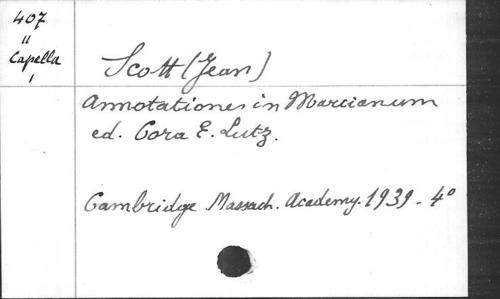 407
"
Capella
Scott (Jean)
Annotationes in Marcianum
ed. Cora E. Lutz.
Cambridge Massach. Academy. 1939 - 4°